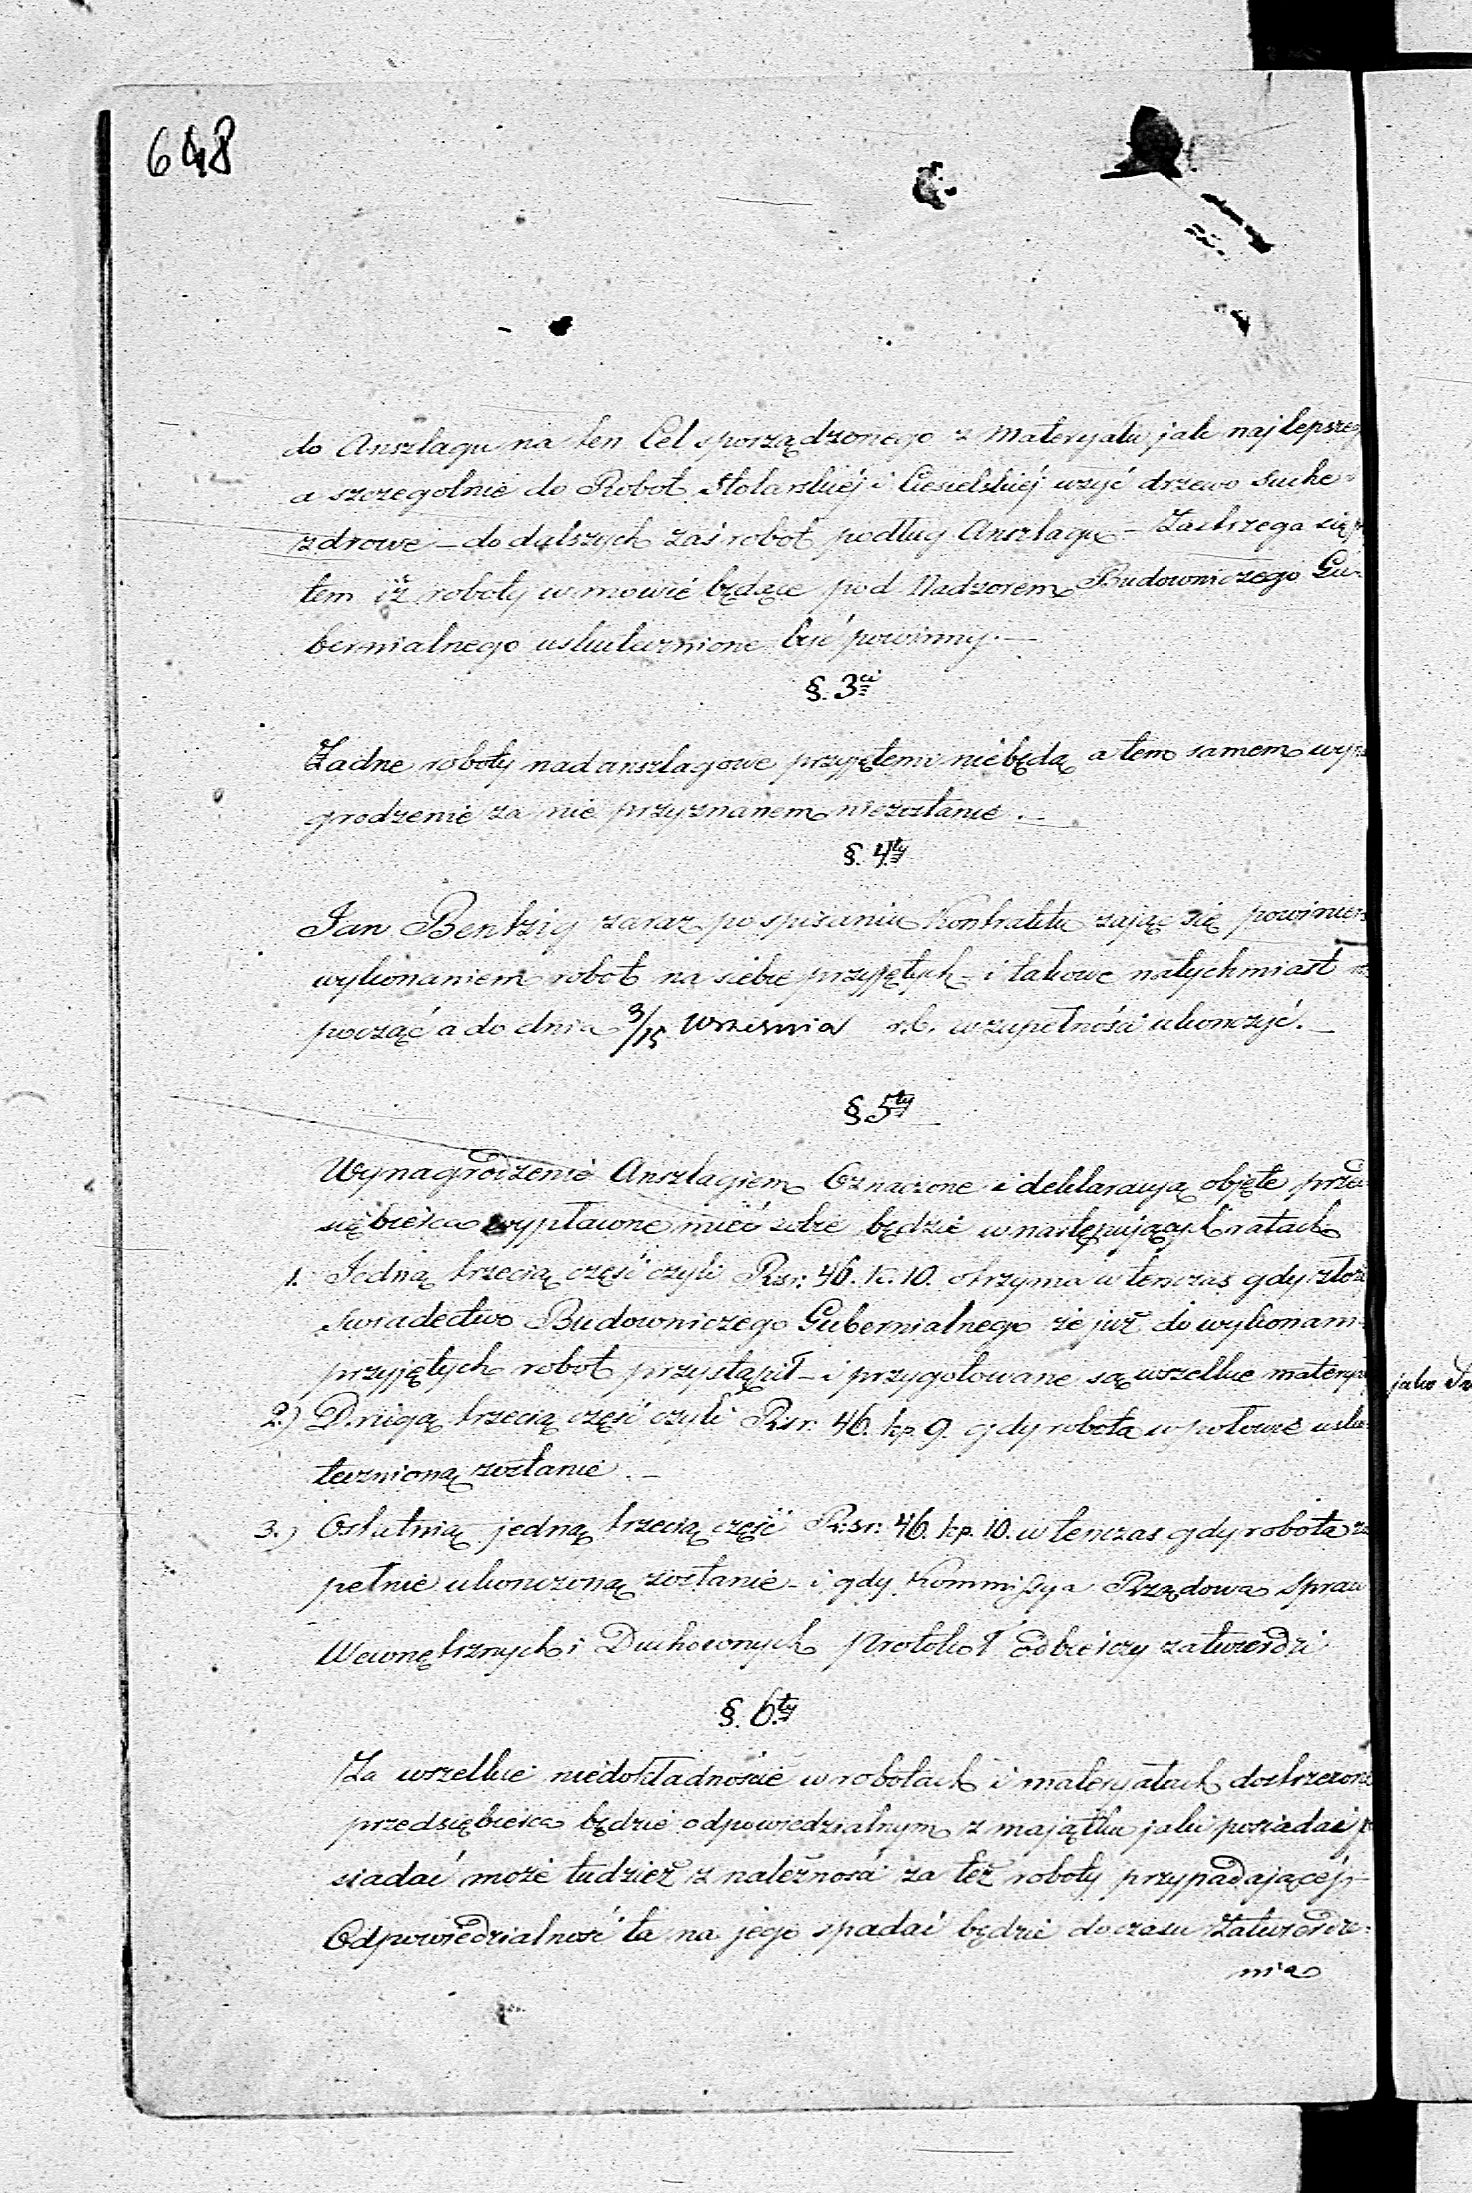 648
do Anszlagu na ten Cel sporządzonego z materyału jak najlepszeg
a szczegolnie do Robot Stolarskiéj i Ciesielskiéj użyć drzewo suche
zdrowe – do dalszych zaś robot podług Anszlagu – Zastrzega się
tem iż roboty w mowie będące pod Nadzorem Budowniczego Gu-
bernialnego uskutecznione być powinny. –
§. 3ci
Żadne roboty nadanszlagowe przyjętemi niebędą a tem samem wyna
grodzenie za nie przyznanem niezostanie. –
§. 4ty
Jan Bentzig zaraz po spisaniu Kontraktu zająć się powinien
wykonaniem robot na siebie przyjętych – i takowe natychmiast
począć a do dnia 3/15 Wrzesnia r.b. w zupełności ukonczyć. –
§ 5ty
Wynagrodzenie Anszlagiem Oznaczone i deklaracyą objęte przed
siębierca wypłacone mieć sobie będzie w następujących ratach
1. Jedną trzecią część czyli Rsr. 46. k. 10. otrzyma w tenczas gdy złoży
swiadectwo Budowniczego Gubernialnego że już do wykonani
przyjętych robot przystąpił – i przygotowane są wszelkie matery
jako Dr
2.) Drugą trzecią część czyli Rsr. 46. kp. 9. gdy robota w połowie usku
tecznioną zostanie. –
3.) Ostatnią jedną trzecią część Rsr. 46. kp. 10. w tenczas gdy robota zu
pełnie ukonczoną zostanie – i gdy Kommissya Rządowa Spraw
Wewnętrznych i Duchownych Protokoł odbiorczy zatwierdzi
§. 6ty
Za wszelkie niedokładnoście w robotach i materyałach dostrzezone
przedsiębierca będzie odpowiedzialnym z majątku jaki posiada i po
siadać może tudzież z należności za też roboty przypadającéj –
Odpowiedzialność ta na jego spadać będzie do czasu Zatwierdze-
nia